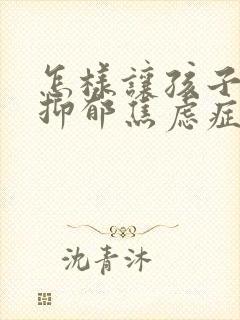 怎樣讓孩子
抑郁焦慮症
沈青沐